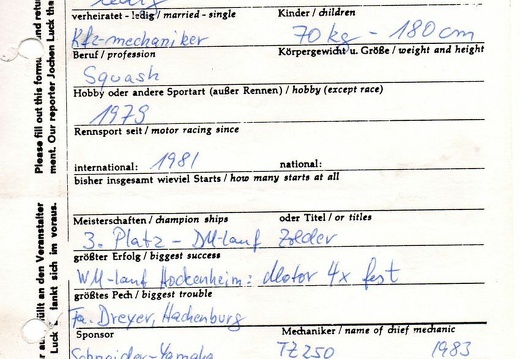 ledig
verheiratet - ledig / married - single Kinder / children
Kfz-mechaniker 70 kg - 180 cm
Beruf / profession Körpergewicht u. Größe / weight and height
Squash
Hobby oder andere Sportart (außer Rennen) / hobby (except race)
1979
Rennsport seit / motor racing since
international: 1981 national:
bisher insgesamt wieviel Starts / how many starts at all
Meisterschaften / champion ships oder Titel / or titles
3. Platz - DM-lauf Zolder
größter Erfolg / biggest success
WM-lauf Hockenheim: Motor 4x fest
größtes Pech / biggest trouble
Fa. Dreyer, Hachenburg
Sponsor Mechaniker / name of chief mechanic
Schneider-Yamaha TZ 250 1983
Please fill out this formu and retu
ment. Our reporter Jochen Luck tha
füllt an den Veranstalter
Luck dankt sich im voraus.